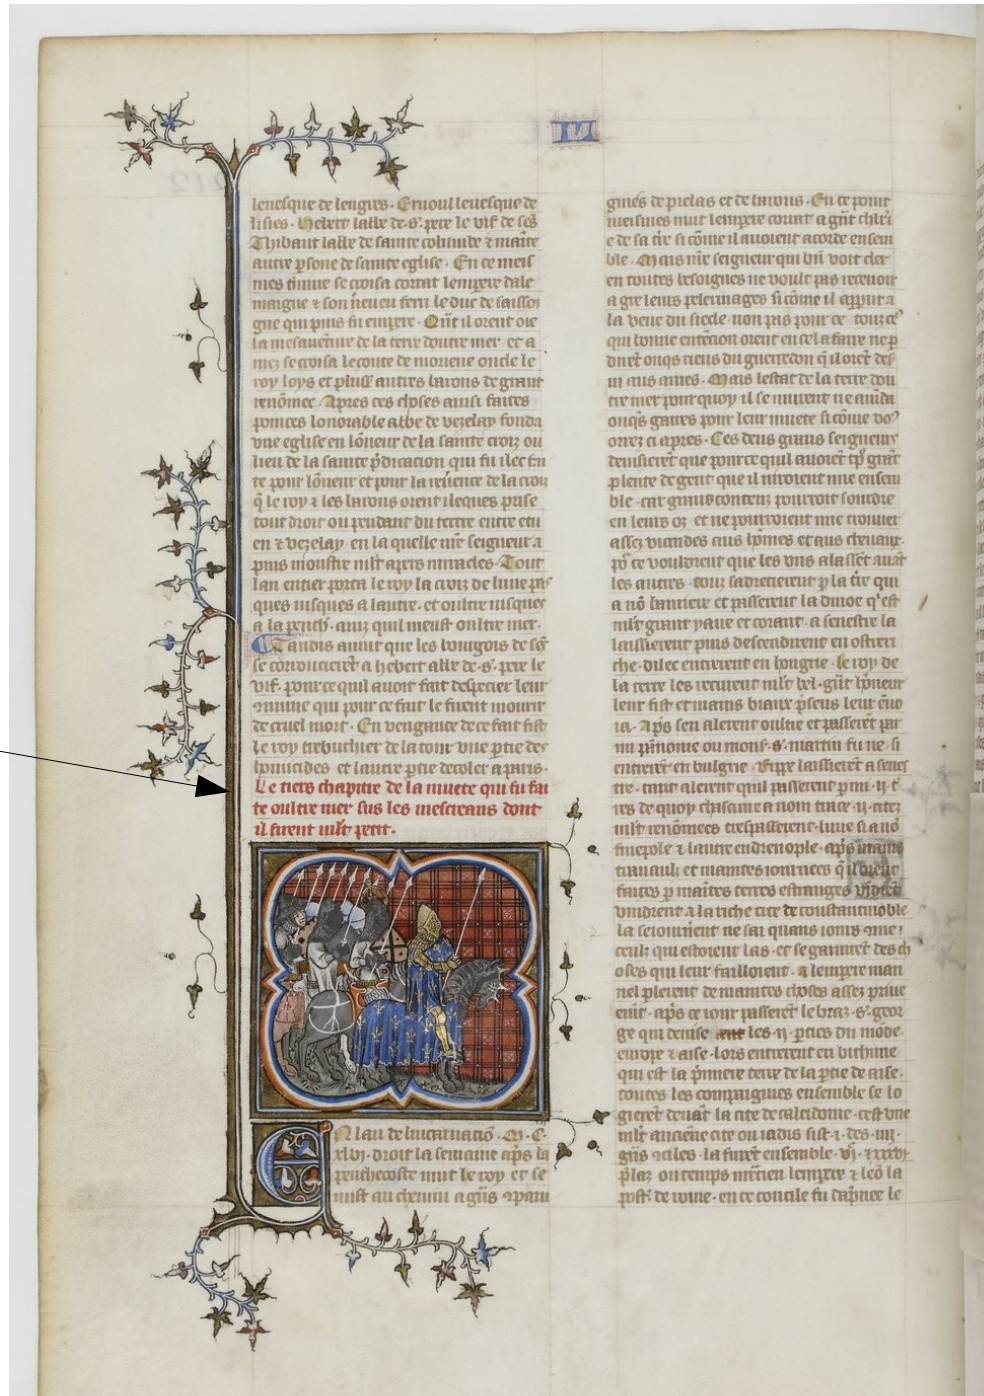 leuesque de lengres · Ernoul leuesque de
lisies · Hebert labbe de · s · pere le vif de sẽs
Thibaut labbe de sainte colũbe & mainte
autre ꝑsone de sainte eglise · En ce meis
mes tinnue se croisa corrat lempere dale
maigne & son neueu ferri le duc de saissoi
gne qui puis fu empere · Q̃nt il orent oie
la mesauenture de la terre doutre mer · et a
mez se croisa le conte de moriene oncle le
roy loys et plusˢ autres barons de grant
renõmee · Apres ces choses ainsi faites
ponces lonorable abbe de vezelay fonda
vne eglise en lõneur de la sainte croiz ou
lieu de la sainte p̃dicacion qui fu ilec fai
te pour lõneur et pour la reuence de la croiz
q̃ le roy & les barons orent ileques prise
tout droit ou pendant du tertre entre etu
en & vezelay · en la quelle nr̃e seigneur a
puis monstre mlt̃ apers miracles · Tout
lan entier porta le roy la croiz de lune pas
ques iusques a lautre · et oultre iusques
a la penth · anz quil meust oultre mer ·
Tandis auint que les bourgois de sẽs
se corroucieret a hebert abbe de · s · pere le
vif · pour ce quil auoit fait despecier leur
9mune qui pour ce fait le firent mourir
de cruel mort · En vengance de ce fait fist
le roy trebuchier de la tour vne ꝑtie des
homicides et lautre ꝑtie decoler a paris ·
Le tiers chapitre de la muete qui fu fai
te oultre mer sus les mescreans dont
il firent mlt̃ petit ·
En lan de lincarnaciõ · M · C ·
xlvi · droit la semaine ap̃s la
penthecoste mut le roy et se
mist au chemin a gñs 9pai
gnies de prelas et de barons · En ce point
meismes mut lempere corrat a gñt chlr̃i
e de sa t̃re si cõme il auoient acorde ensem
ble · Mais nr̃e seigneur qui bñ voit cler
en toutes besoignes ne voult pas receuoir
a gre leurs pelerinages si cõme il apparut a
la veue du siecle · non pas pour ce touz ceˢ
qui bonne entẽcion orent en cel a faire ne ꝑ
dirẽt onq̃s riens du guerredon q̃ il orẽt des
ui aus ames · Mais lestat de la terre dou
tre mer pour quoy il se murent ne amda
onq̃s gaires pour leur muete si cõme voˢ
orrez ci apres · Ces deus grans seigneurs
deuiserẽt que pour ce quil auoiẽt tp̃ grãt
plente de gent · que il niroient mie ensem
ble · car grans contenz pourroit sourdre
en leurs oz · et ne pourroient mie trouuer
assez viandes aus hõmes et aus cheuaux
põ ce vouldrent que les vns alassẽt auãt
les autres · touz sadrecierent ꝑ la t̃re qui
a nõ bauiere et passerent la dinoe q̃ est
mlt̃ grant yaue et corant · a senestre la
laissierent puis descendirent en osteri
che · dilec entrerent en hongrie · le roy de
la terre les receurent mlt̃ bel · gñt hõneur
leur fist et mains biaux p̃sens leur ẽuo
ia · Ap̃s sen alerent oultre et passerẽt par
mi pãnonie ou mons · s · martin fu ne · si
entrerẽt en bulgrie · Rippe laissierẽt a senes
tre · tant alerent quil passerent ꝑ mi · ij · t̃
res de quoy chascune a nom trace · ij · citez
mlt̃ renõmees trespasserent · lune si a nõ
finepole & lautre endrenople · ap̃s mains
trauaulz et maintes iournees q̃ il orẽt
faites ꝑ maĩtes terres estranges
vindrent a la riche cite de constantinoble
la seiournẽt ne sai quans iours 9me
ceulz qui estoient las · et se garnirẽt des ch
oses qui leur failloient · a lempere man
uel ꝑlerent de maintes choses assez priue
emt̃ · ap̃s ce iour passerẽt le braz · s · geor
ge qui deuise les · ij · ꝑties du mõde
europe & aise · lors entrerent en bithinie
qui est la p̃miere terre de la ꝑtie de aise ·
toutes les compaignies ensemble se lo
gierẽt deuãt la cite de calcidoine · cest vne
mlt̃ anciẽne cite ou iadis fist · i · des · iiij ·
gñs 9ciles · la furẽt ensemble · vj · & xxxvj
p̃laz · ou temps mr̃cien lempere & leõ la
post̃ de rome · en ce concile fu dãpnee le